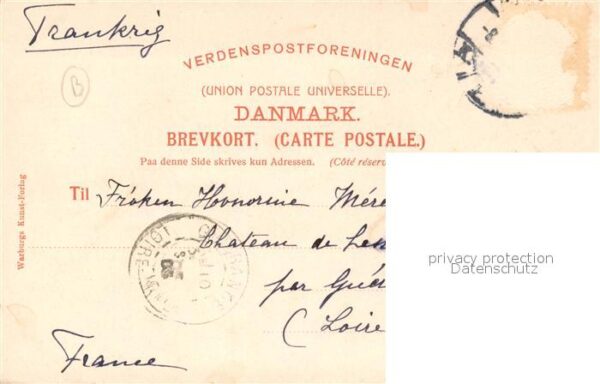 Frankrig
B
VERDENSPOSTFORENINGEN
(UNION POSTALE UNIVERSELLE).
DANMARK.
BREVKORT. (CARTE POSTALE.)
Paa denne Side skrives kun Adressen. (Côté réserv
Warburgs Kunst-Forlag
Til Frøken Honorine Mére
Chateau de
par Gué
(Loire
France
LOIRE
privacy protection
Datenschutz